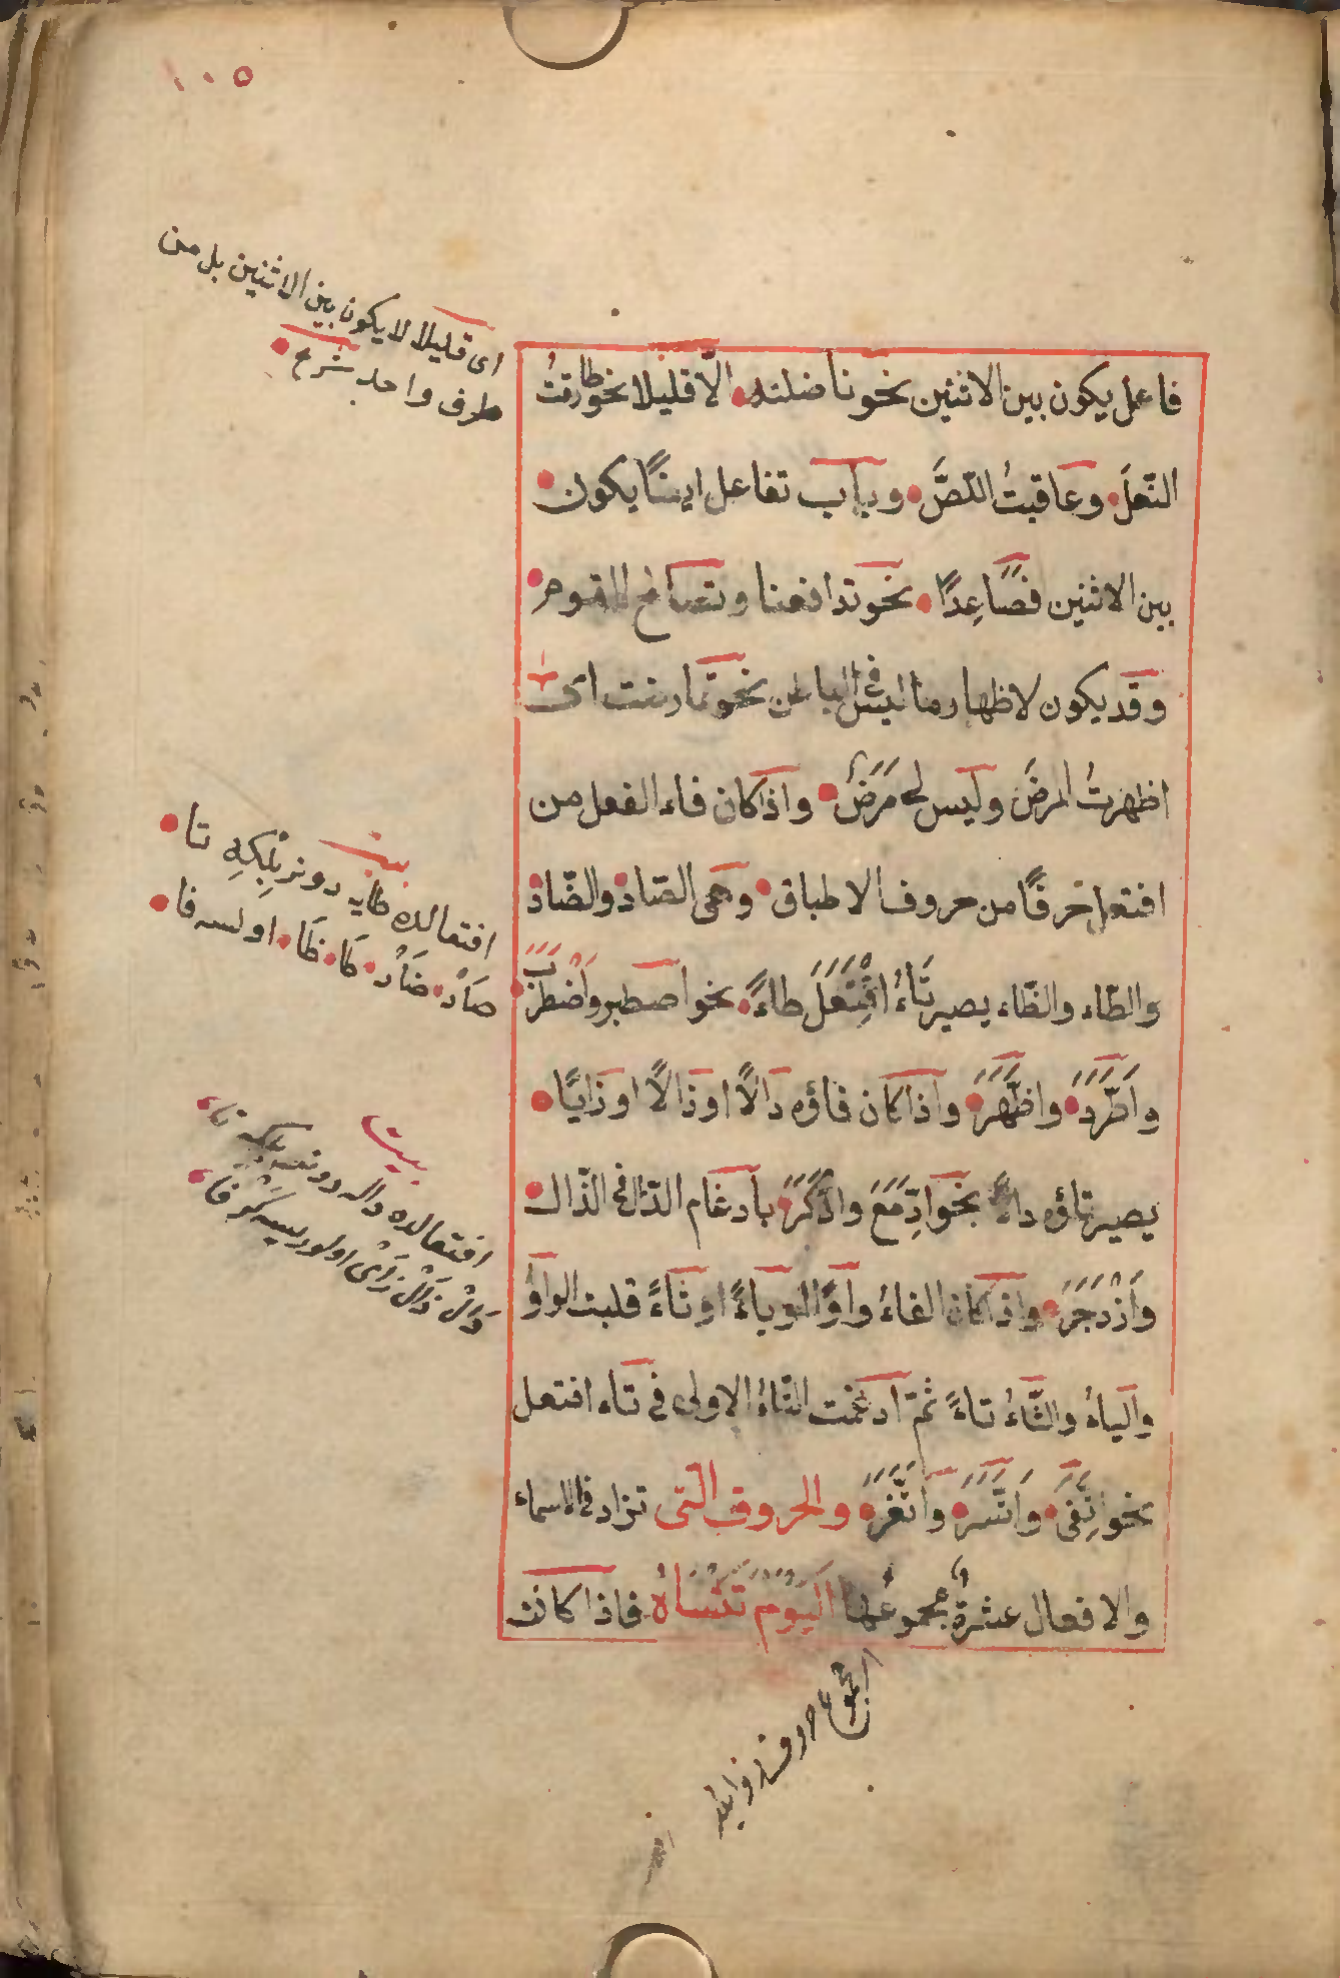 ١٠٥
اى قليلا لا يكون بين الاثنين بل من
طرف واحد شرح
فاعل يكون بين الاثنين نحو ناضلته الّا قليلا نحو طارقتُ
النّعلَ وعاقبتُ اللّصَّ وباب تفاعل ايضًا يكون
بين الاثنين فصاعِدًا نحو تدافعنا وتصالح القوم
وقد يكون لاظهار ما ليس فى الباطن نحو تمارضت اى
اظهرتُ المرضَ وليس لى مَرَضٌ واذا كان فاء الفعل من
افتعل حرفًا من حروف الاطباق وهى الصّاد والضّاد
والطّاء والظّاء يصير تَاءُ افْتَعَلَ طاءً نحو اصطبر واضْطَرَبَ
واطَّرَدَ واظَّهَرَ واذا كان فاؤه دالًا او ذالًا او زايًا
يصير تاؤه دالًا نحو ادِّمَعَ واذَّكَرَ بادغام الدّال فى الذّال
وازْدَجَرَ واذا كان الفاءُ واوًا او ياءً او ثاءً قلبت الواوُ
والياءُ والثّاءُ تاءً ثمّ ادغمت التّاءُ الاولى فى تاء افتعل
نحو اتّقى واتَّسَرَ واتَّغَرَ والحروف الّتى تزاد فى الاسماء
والافعال عشرةٌ مجموعُها اليَوْمَ تَنْسَاهُ فاذا كانت
بيت
افتعالده طايه دونر بِلِكِه تا
صَادْ ضَادْ طَا ظَا اولسه فا
بيت
افتعالده داله دونر بلكه تا
دَالْ ذَالْ زَاىْ اولورسه كَرْ فا
المجموع حروف زوايد